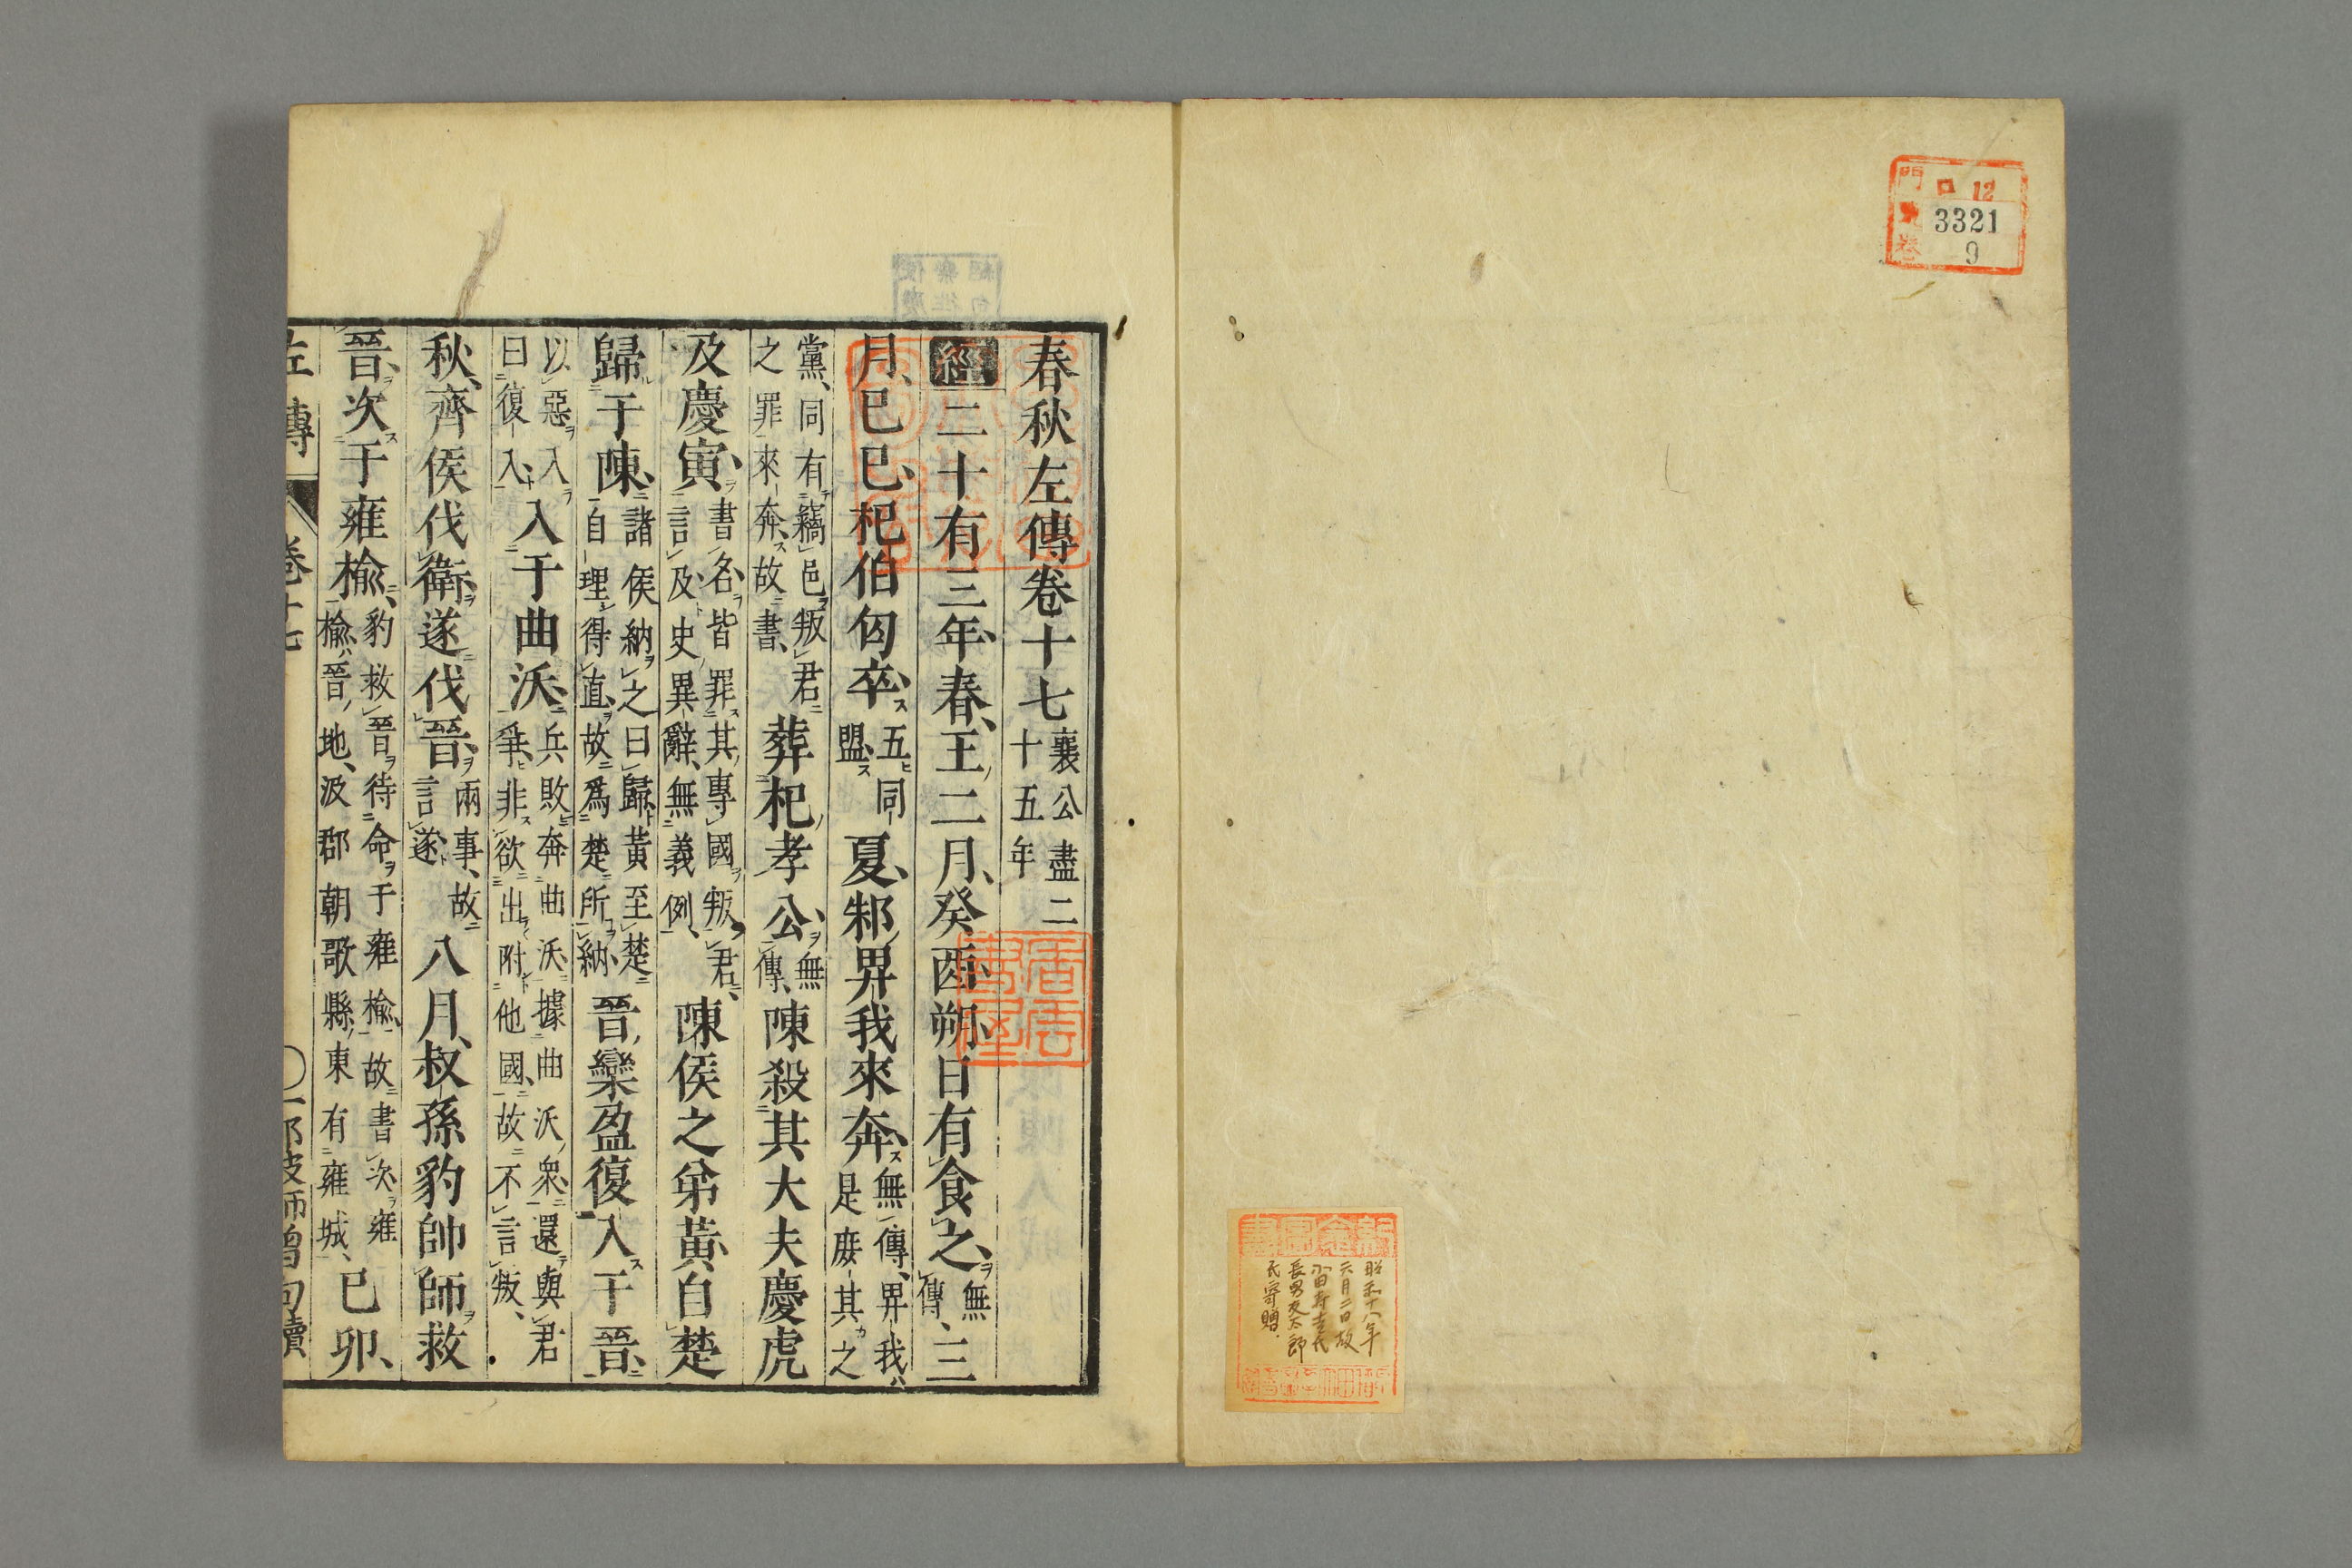 門
ロ 12
號 3321
卷 9
昭和十八年
六月二日故
富田寿吉氏
長男友太郎
氏寄贈
春秋左傳卷十七 襄公 盡二十五年
經 二十有三年、春、王二月、癸酉朔、日有食之、無傳、三
月、己巳、杞伯匄卒、五同盟、夏、邾畀我來奔、無傳、畀我是庶其之
黨、同有竊邑叛君之罪、來奔、故書、葬杞孝公、無傳、陳殺其大夫慶虎
及慶寅、書名、皆罪其專國叛君、言及、史異辭、無義例、陳侯之弟黃、自楚
歸于陳、諸侯納之曰歸、黃至楚自理得直、故爲楚所納、晉欒盈復入于晉、
以惡入曰復入、入于曲沃、兵敗奔曲沃、據曲沃衆、還與君爭、非欲出附他國、故不言叛、
秋、齊侯伐衛、遂伐晉、兩事、故言遂、八月、叔孫豹帥師救
晉、次于雍榆、豹救晉、待命于雍榆、故書次、雍榆、晉地、汲郡朝歌縣、東有雍城、己卯、
左傳 卷十七 ○一 那波師曾句讀